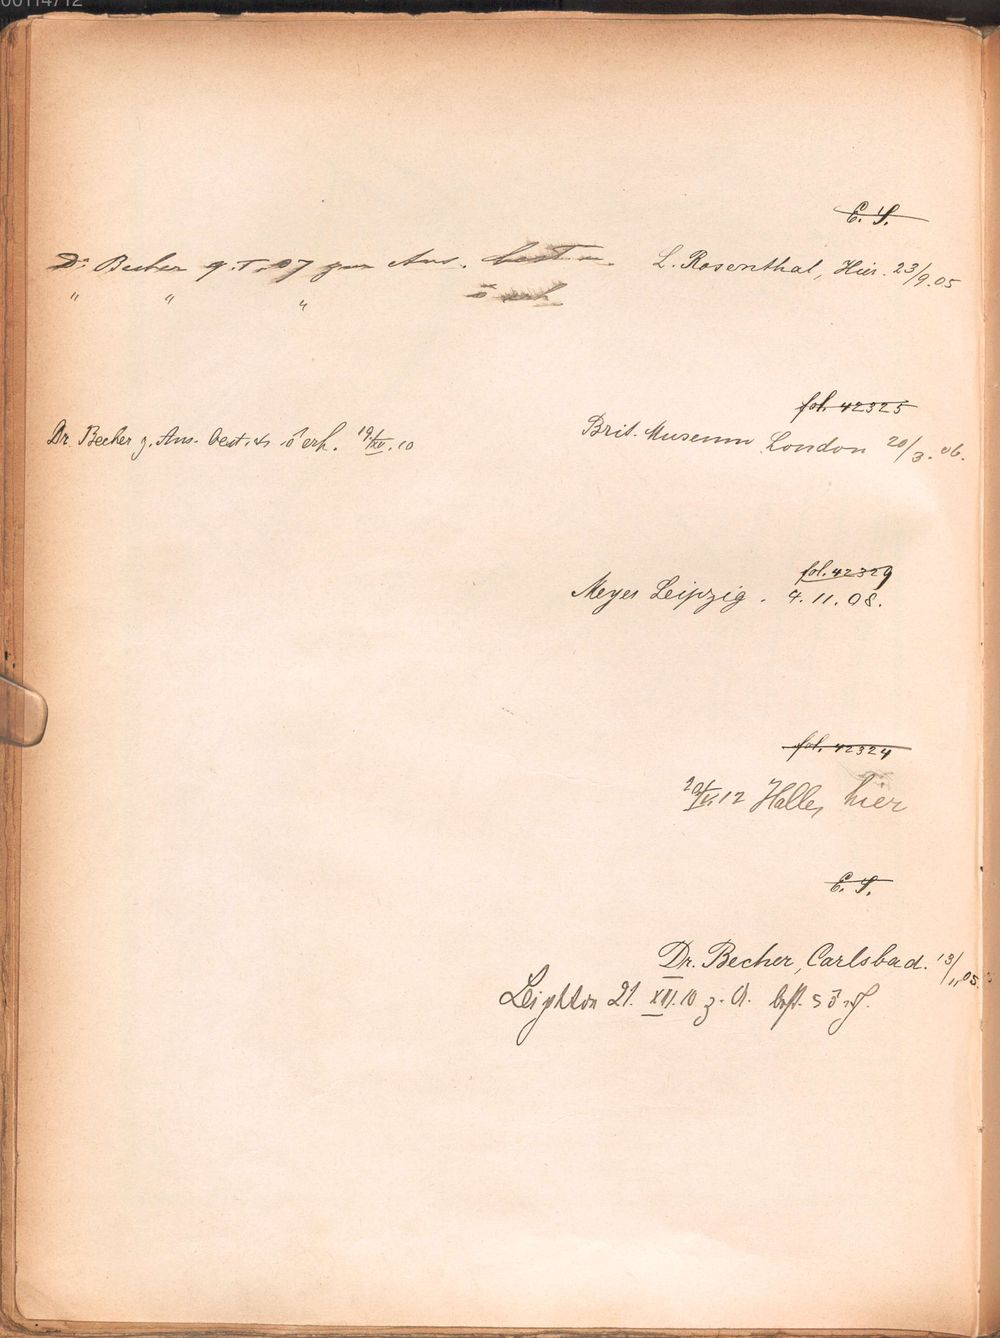 00114712
E. S.
Dr. Becher 9.I.07 zur Ans. best u. L. Rosenthal, Hier. 23/9.05
" " " ō erh
fol. 42325
Dr. Becher z. Ans. best. & ō erh. 19/XII.10 Brit. Museum London 20/3.06.
fol. 42329
Meyer Leipzig. 4.11.08.
fol. 42324
12 Halle, hier
E. S.
Dr. Becher, Carlsbad. 13/11.05.
Leighton 21. XII.10 z. A. best.